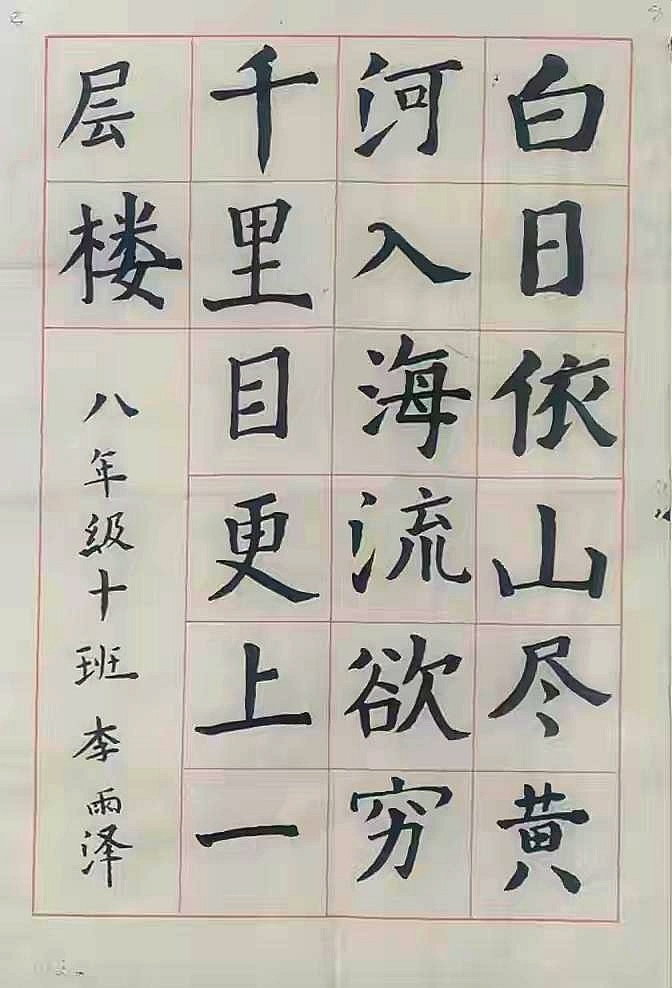 白日依山尽黄
河入海流欲穷
千里目更上一
层楼
八年级十班 李雨泽